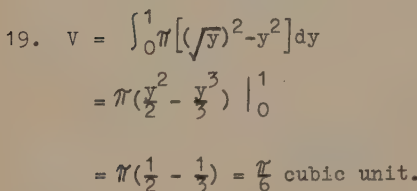 19. V = ∫₀¹ π[(√y)²-y²]dy
= π(y²/2 - y³/3) |₀¹
= π(1/2 - 1/3) = π/6 cubic unit.